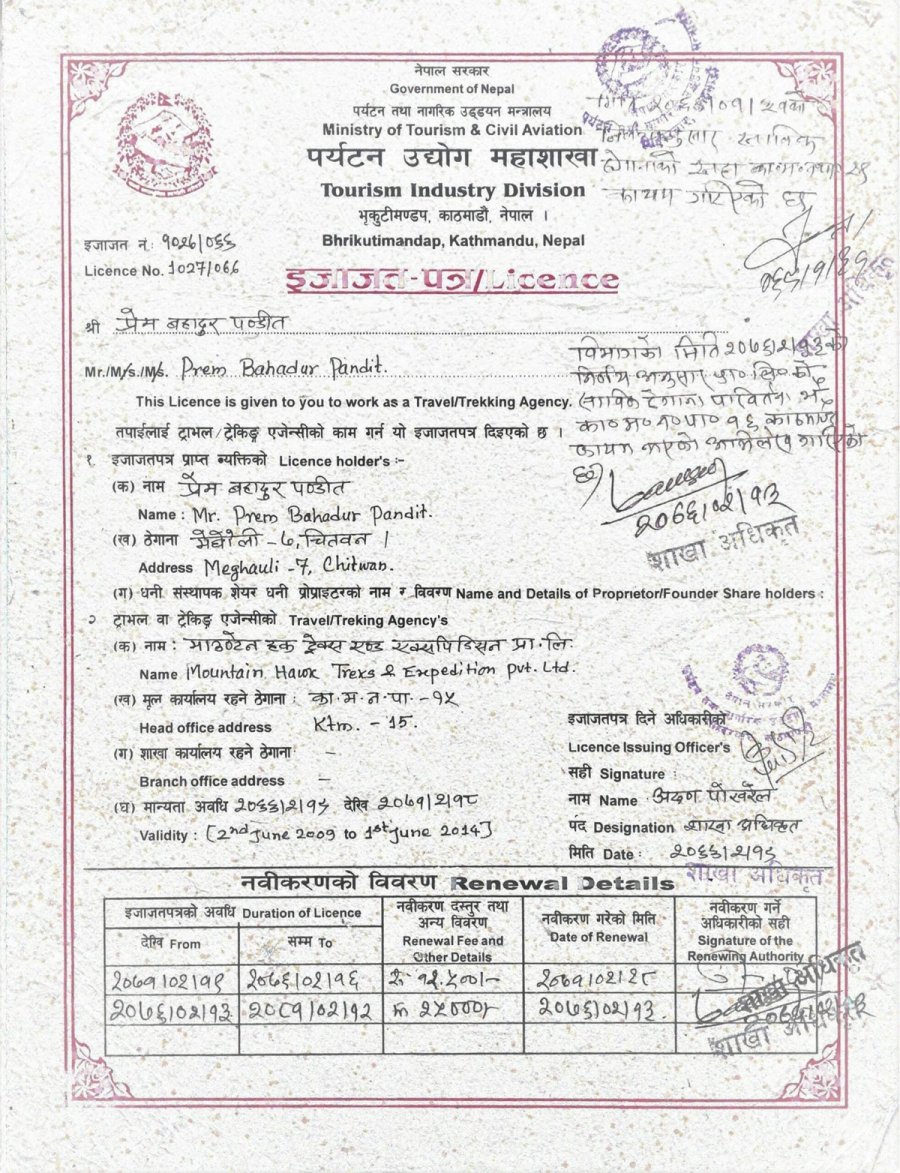 नेपाल सरकार
Government of Nepal
पर्यटन तथा नागरिक उड्डयन मन्त्रालय
Ministry of Tourism & Civil Aviation
पर्यटन उद्योग महाशाखा
Tourism Industry Division
भृकुटीमण्डप, काठमाडौं, नेपाल ।
Bhrikutimandap, Kathmandu, Nepal
कायम गरिएको छ
इजाजत नं: १०२७/०६६
Licence No. 1027/066
इजाजत-पत्र/Licence
श्री प्रेम बहादुर पण्डीत
Mr./M/s./Ms. Prem Bahadur Pandit.
This Licence is given to you to work as a Travel/Trekking Agency.
तपाईलाई ट्राभल/ट्रेकिङ्ग एजेन्सीको काम गर्न यो इजाजतपत्र दिइएको छ ।
विभागको मिति २०७६/२/१३ को
निर्णय अनुसार प्रा० लि० को
का० म० न० पा० १६ काठमाण्डौ
शाखा अधिकृत
१ इजाजतपत्र प्राप्त ब्यक्तिको Licence holder's :-
(क) नाम प्रेम बहादुर पण्डीत
Name : Mr. Prem Bahadur Pandit.
(ख) ठेगाना मेघौली -७, चितवन ।
Address Meghauli -7, Chitwan.
(ग) धनी संस्थापक शेयर धनी प्रोप्राइटरको नाम र विवरण Name and Details of Proprietor/Founder Share holders :
२ ट्राभल वा ट्रेकिङ्ग एजेन्सीको Travel/Treking Agency's
(क) नाम : माउण्टेन हक ट्रेक्स एण्ड एक्सपिडिसन प्रा.लि.
Name Mountain Hawk Treks & Expedition Pvt. Ltd.
(ख) मुल कार्यालय रहने ठेगाना : का.म.न.पा. -१५
Head office address Ktm. - 15.
(ग) शाखा कार्यालय रहने ठेगाना: -
Branch office address -
(घ) मान्यता अवधि २०६६/२/१९ देखि २०७१/२/१८
Validity : [2nd June 2009 to 1st June 2014]
इजाजतपत्र दिने अधिकारीको
Licence Issuing Officer's
सही Signature :
नाम Name : अरुण पोखरेल
पद Designation शाखा अधिकृत
मिति Date : २०६६/२/१९
शाखा अधिकृत
नवीकरणको विवरण Renewal Details
इजाजतपत्रको अवधि Duration of Licence
देखि From
सम्म To
नवीकरण दस्तुर तथा
अन्य विवरण
Renewal Fee and
Other Details
नवीकरण गरेको मिति
Date of Renewal
नवीकरण गर्ने
अधिकारीको सही
Signature of the
Renewing Authority
२०७१/०२/१९ २०७६/०२/१८ रु १२,५००/- २०७१/०२/२८
शाखा अधिकृत
२०७६/०२/१३ २०८१/०२/१२ रु २५०००/- २०७६/०२/१३
शाखा अधिकृत